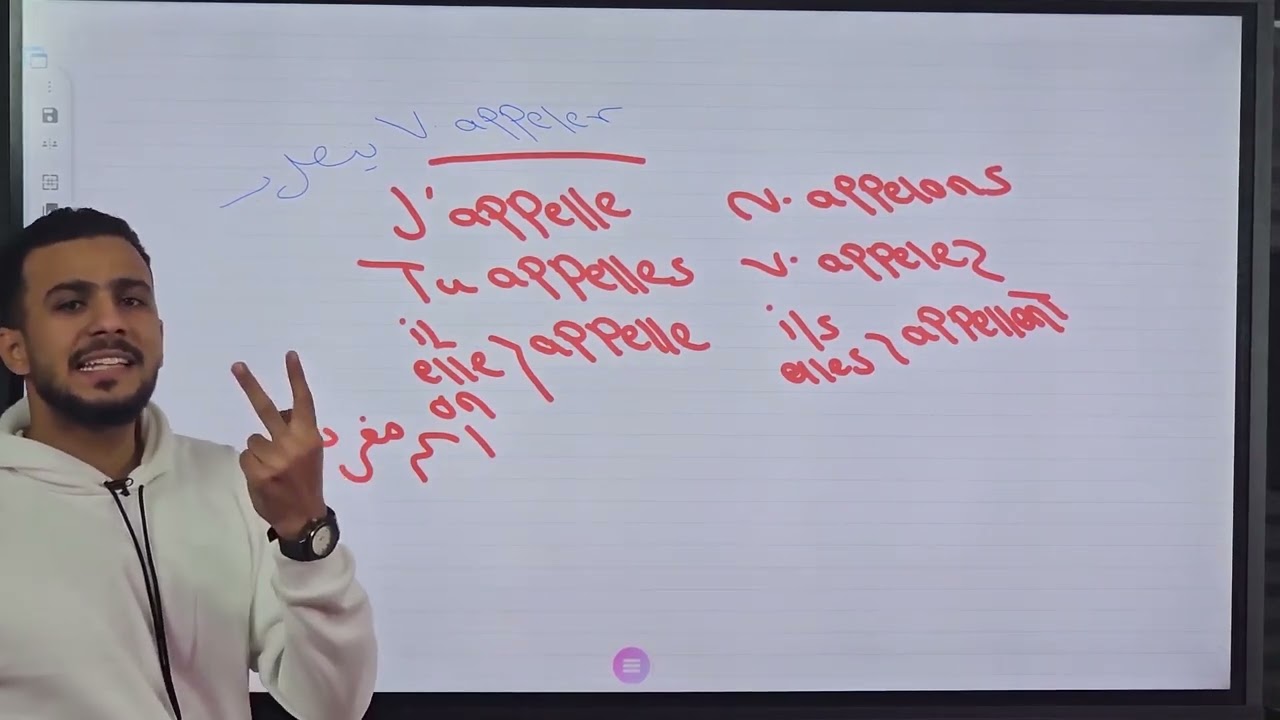 V. appeler يتصل
J'appelle
Tu appelles
il
elle } appelle
on
اسم مفرد
N. appelons
V. appelez
ils
elles } appellent